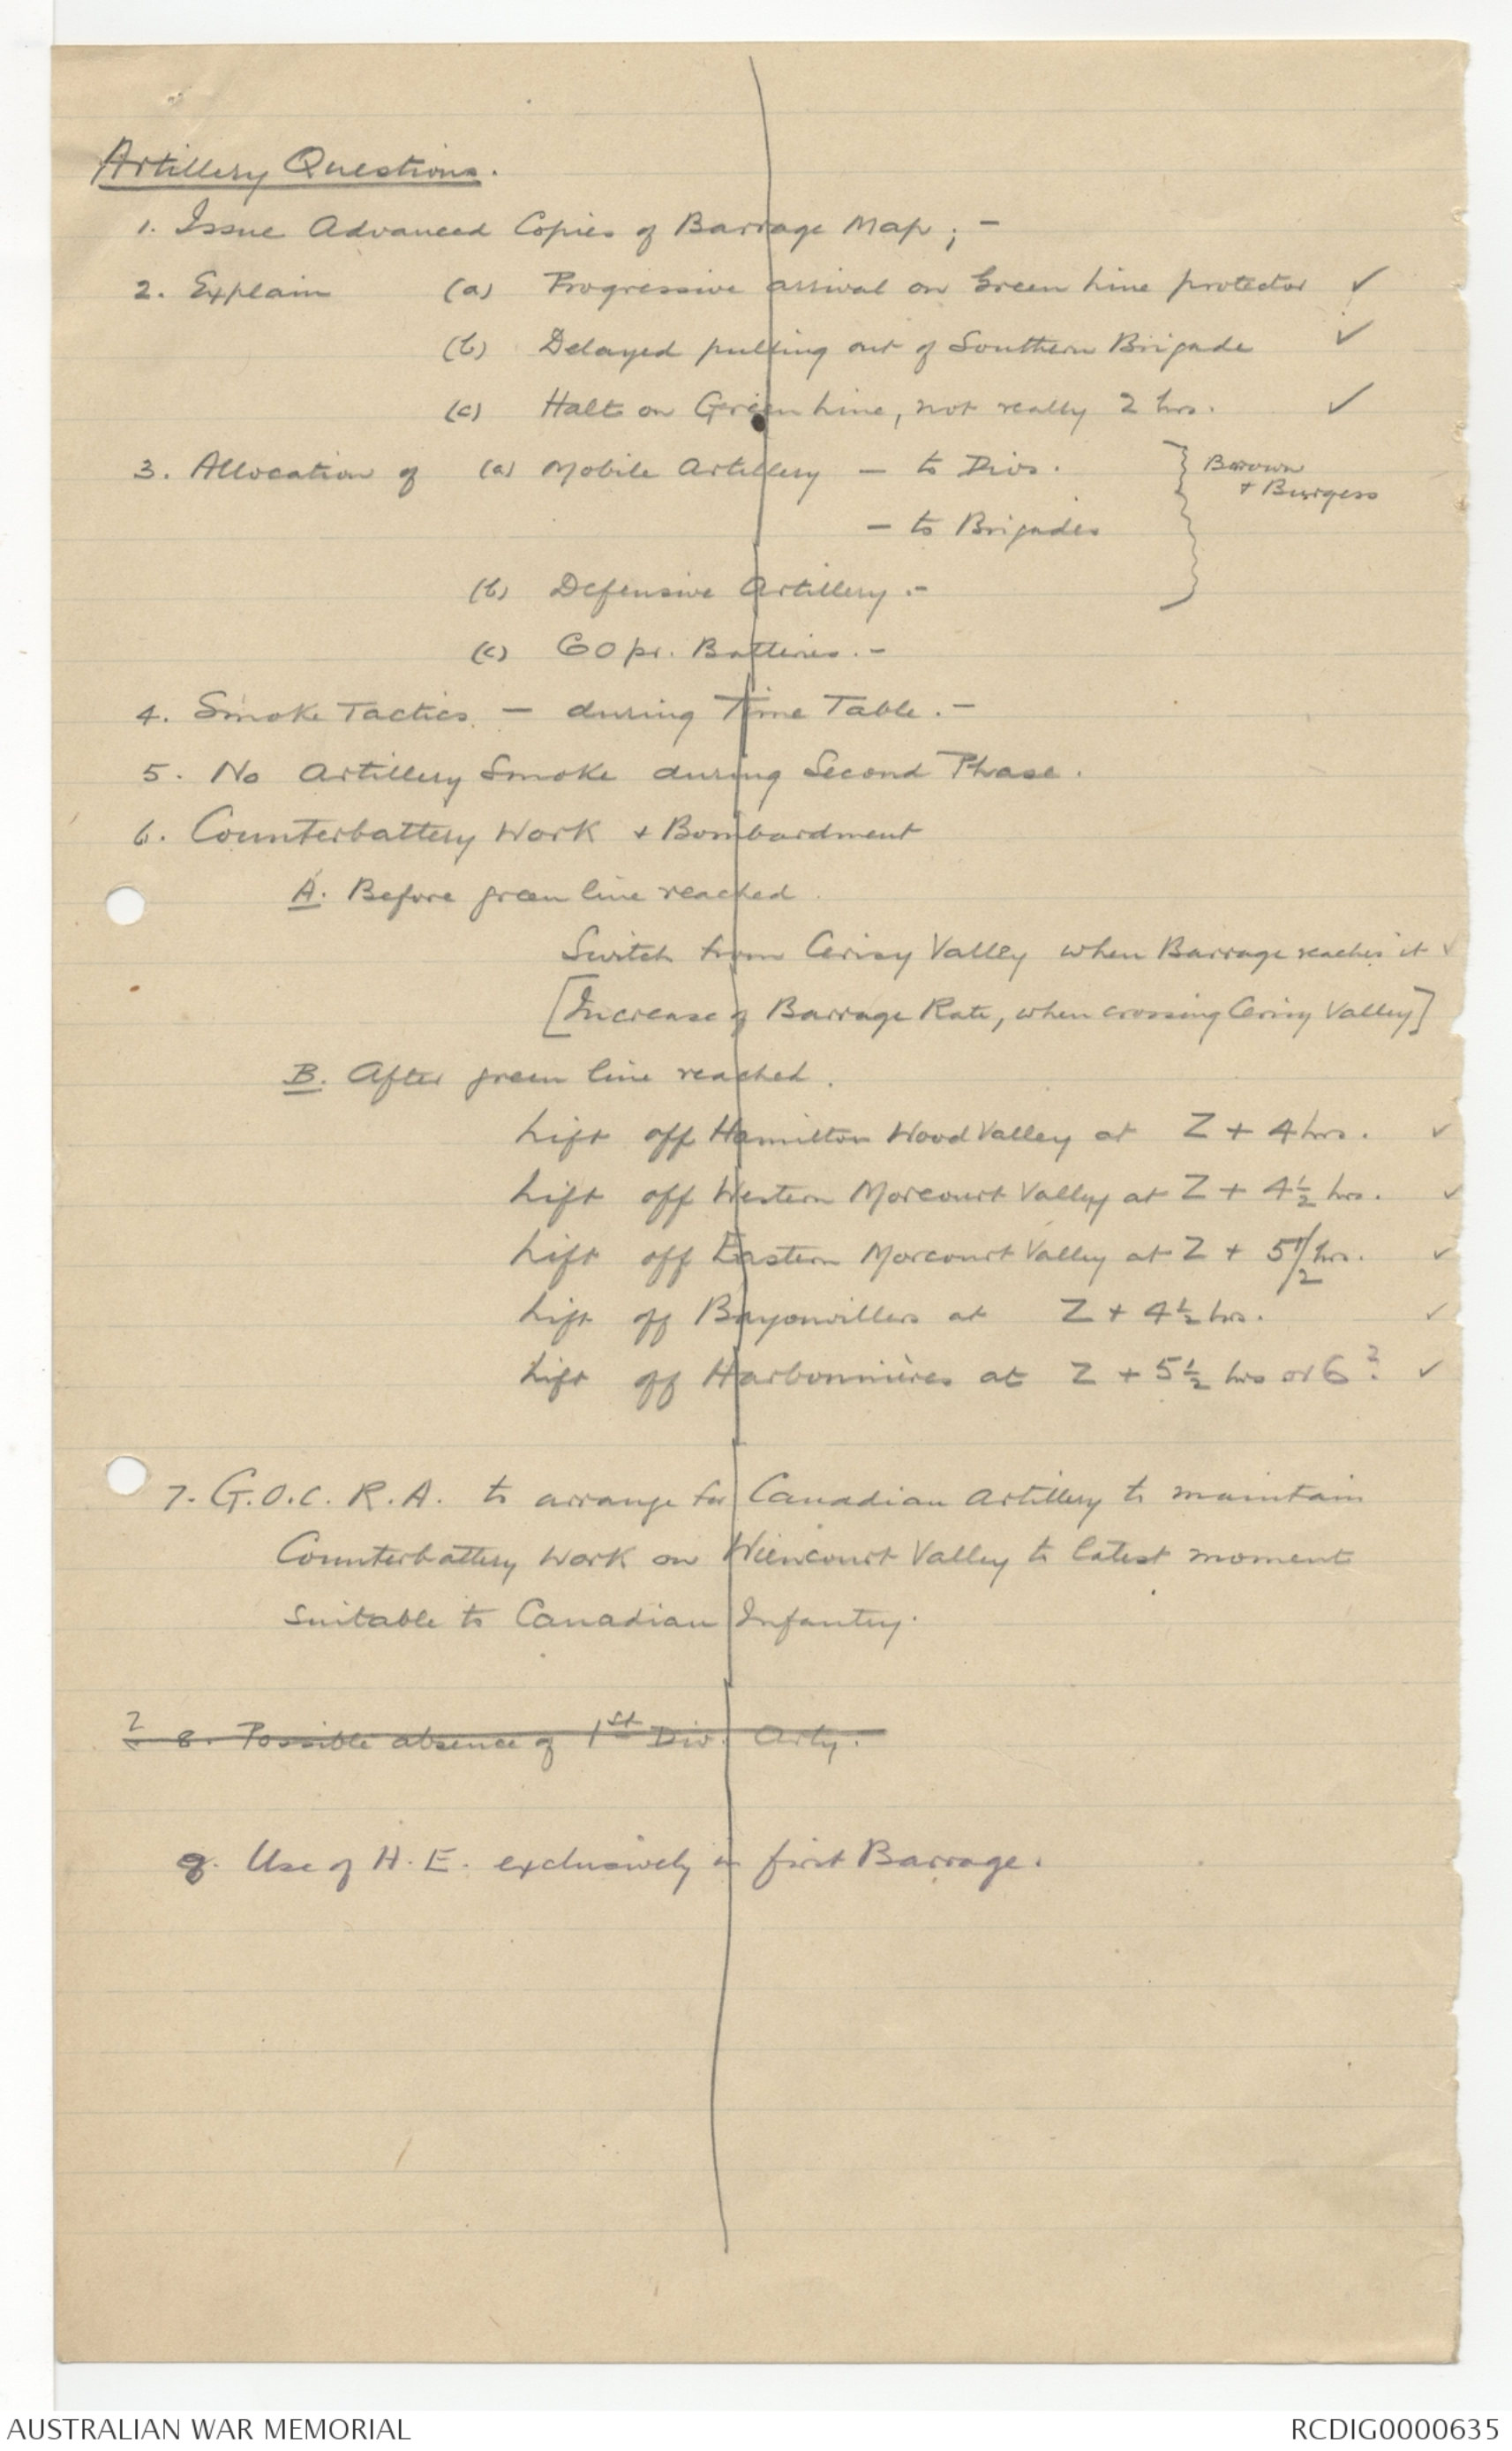 Artillery Questions.
1. Issue Advanced Copies of Barrage Map; -
2. Explain (a) Progressive arrival on Green Line protector ✓
(b) Delayed pulling out of Southern Brigade ✓
(c) Halt on Green Line, not really 2 hrs. ✓
3. Allocation of (a) Mobile Artillery - to Divs. } Brown
+ Burgess
- to Brigades
(b) Defensive Artillery. -
(c) 60 pr. Batteries. -
4. Smoke Tactics. - during Time Table. -
5. No Artillery Smoke during Second Phase.
6. Counterbattery Work + Bombardment
A. Before green line reached.
Switch from Cerisy Valley when Barrage reaches it ✓
[Increase of Barrage Rate, when crossing Cerisy Valley]
B. After green line reached.
Lift off Hamilton Wood Valley at Z + 4 hrs. ✓
Lift off Western Morcourt Valley at Z + 4½ hrs. ✓
Lift off Eastern Morcourt Valley at Z + 5 1/2 hrs. ✓
Lift off Bayonvillers at Z + 4½ hrs. ✓
Lift off Harbonnières at Z + 5½ hrs or 6? ✓
7. G.O.C. R.A. to arrange for Canadian Artillery to maintain
Counterbattery Work on Wiencourt Valley to latest moment
suitable to Canadian Infantry.
? 8. Possible absence of 1st Div. Arty.
8. Use of H.E. exclusively in first Barrage.
AUSTRALIAN WAR MEMORIAL
RCDIG0000635